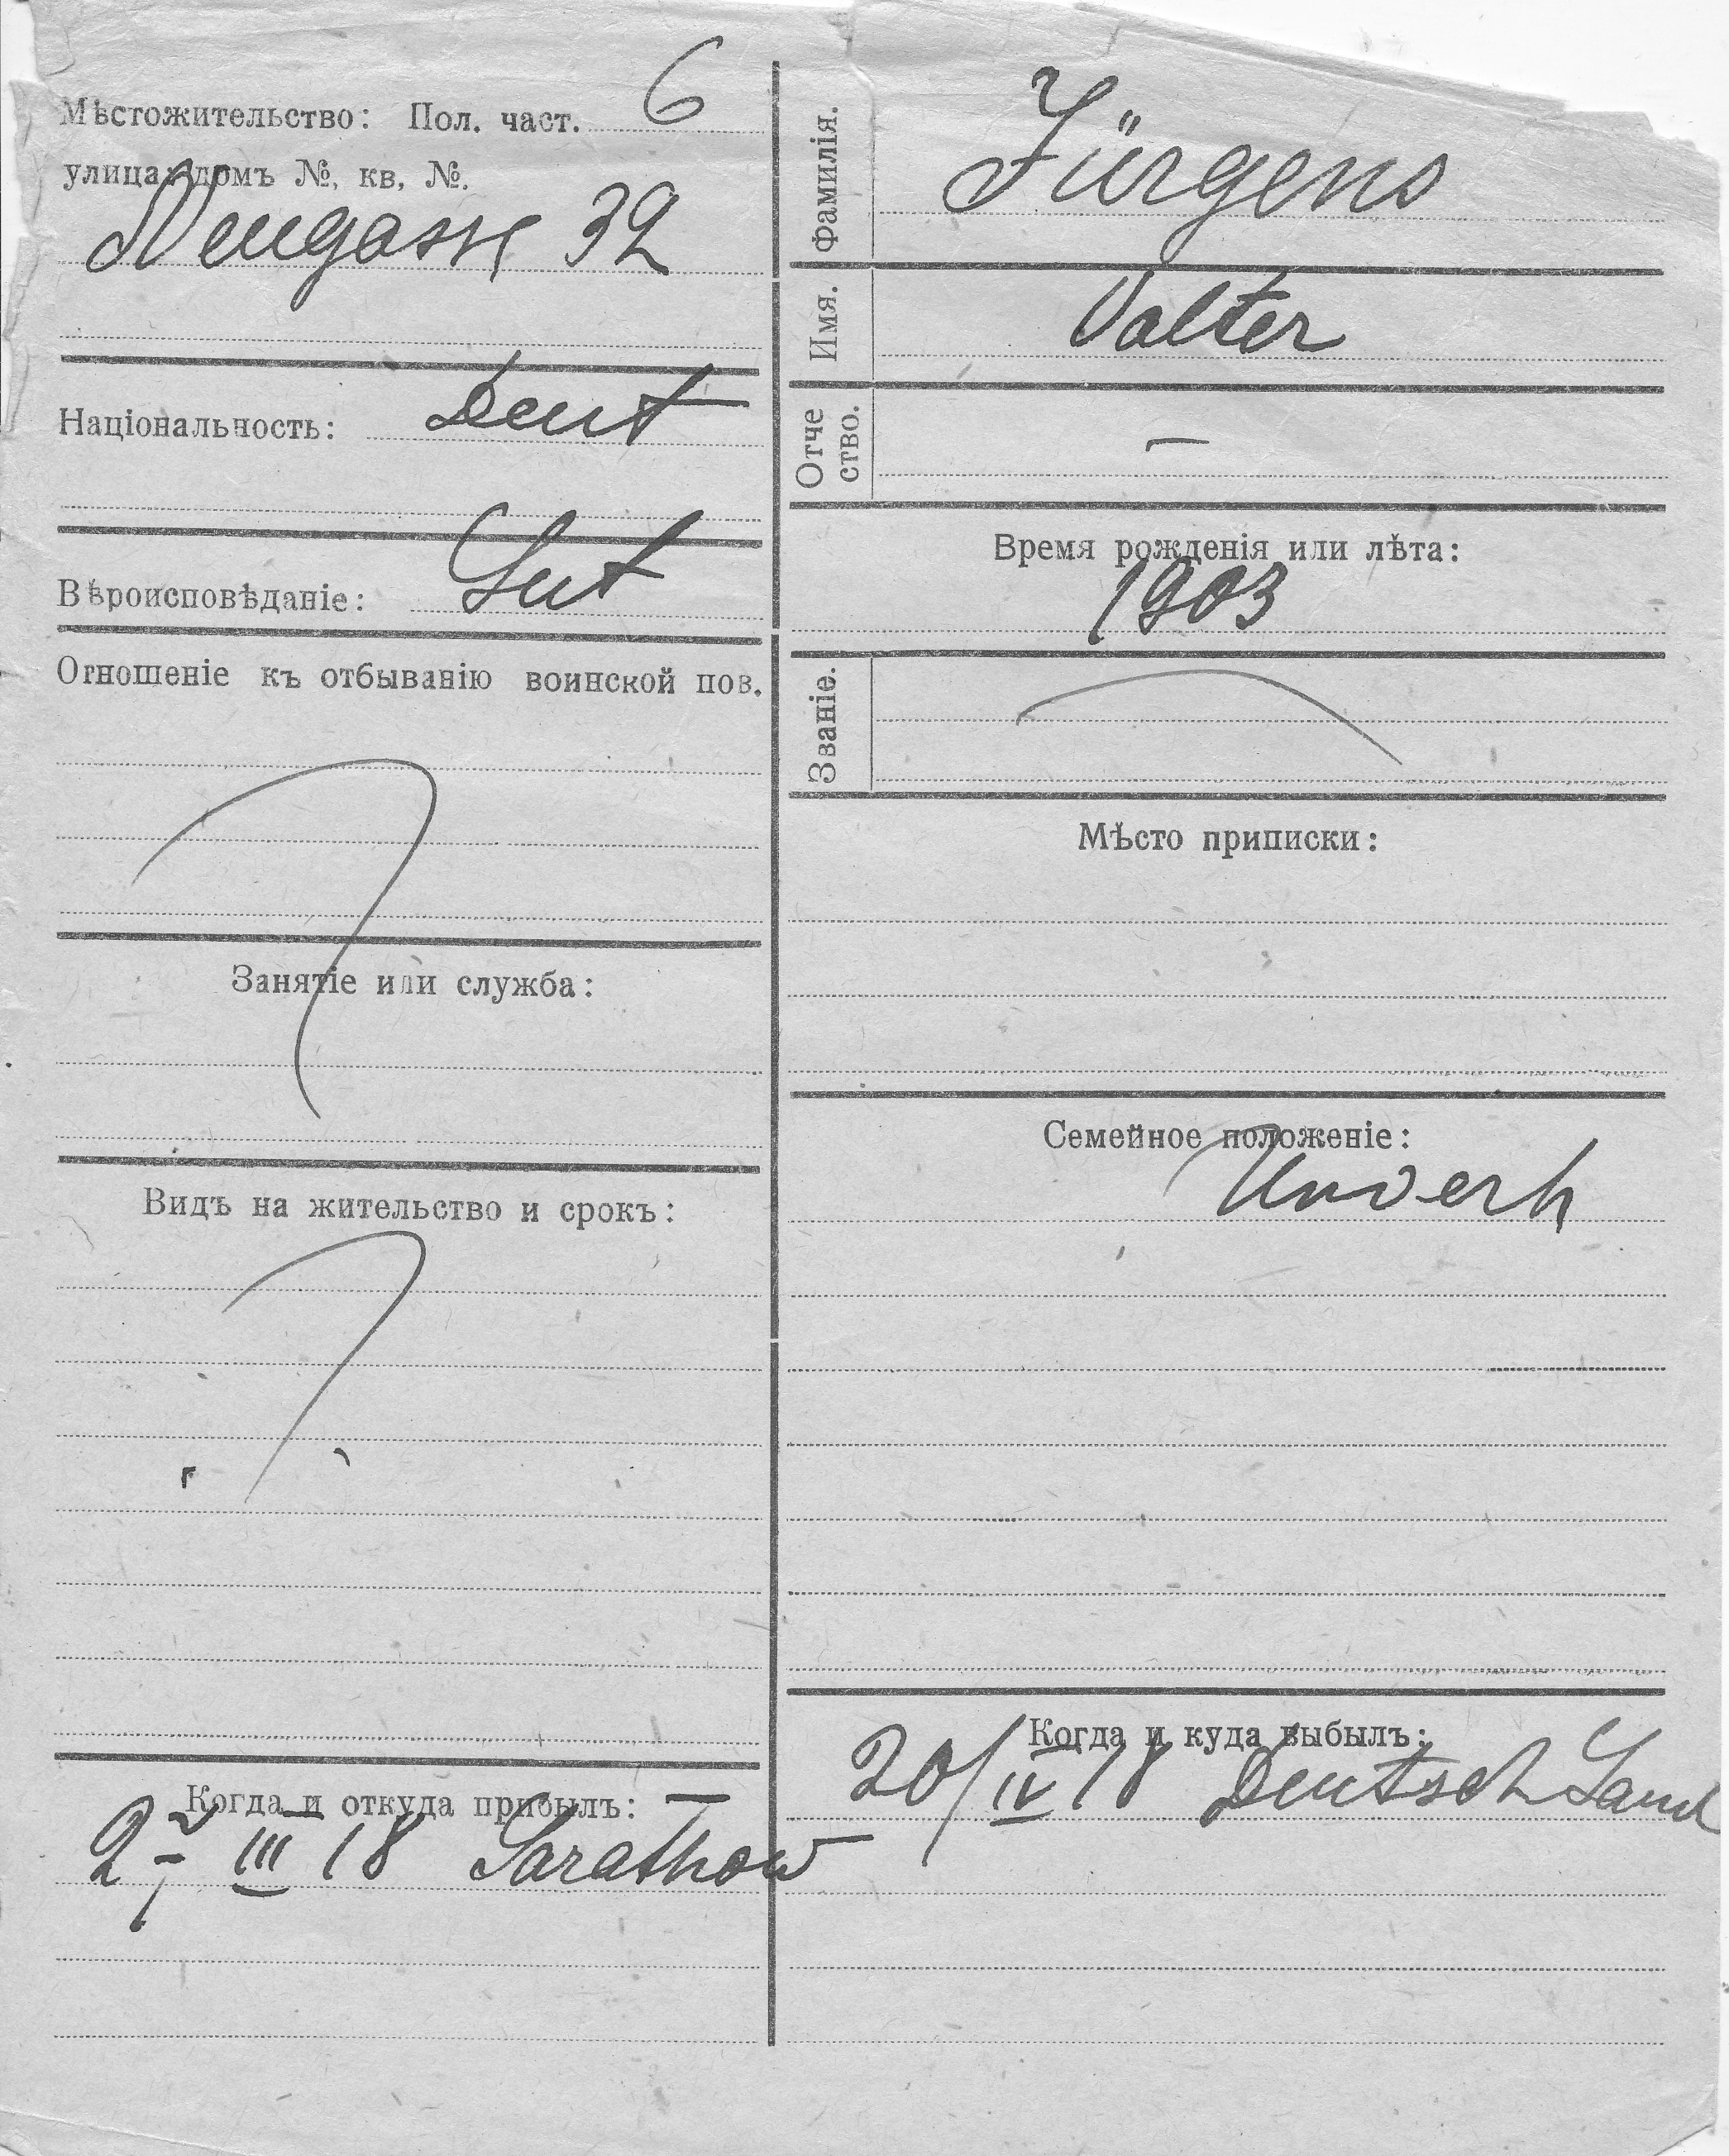 Мѣстожительство: Пол. част. 6
улица: домъ №, кв. №.
Neugasse 32
Національность: Deut
Вѣроисповѣданіе: Lut
Отношеніе къ отбыванію воинской пов.
Занятіе или служба:
Видъ на жительство и срокъ:
Когда и откуда прибылъ:
III 18 Sarathow
Фамилія. Jürgens
Имя. Valter
Отчество. —
Время рожденія или лѣта:
1903
Званіе.
Мѣсто приписки:
Семейное положеніе:
Unverh
Когда и куда выбылъ:
20/IV 18 Deutschland